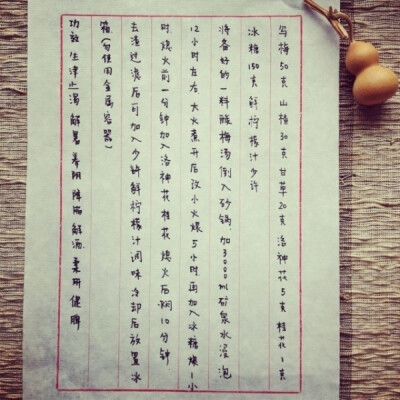 乌梅50克 山楂30克 甘草20克 洛神花5克 桂花1克
冰糖150克 鲜柠檬汁少许
将备好的一料酸梅汤倒入砂锅,加3000ml矿泉水浸泡
12小时左右,大火煮开后改小火煨5小时再加入冰糖煨一小
时,熄火前一分钟加入洛神花桂花,熄火后焖10分钟
去渣过滤后可加入少许鲜柠檬汁调味冷却后放置冰
箱(勿使用金属容器)
功效 生津止渴 解暑养阴 降脂解酒 柔肝健脾